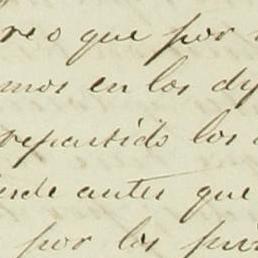 reo que por
mos en los
repartido los
antes que
por los